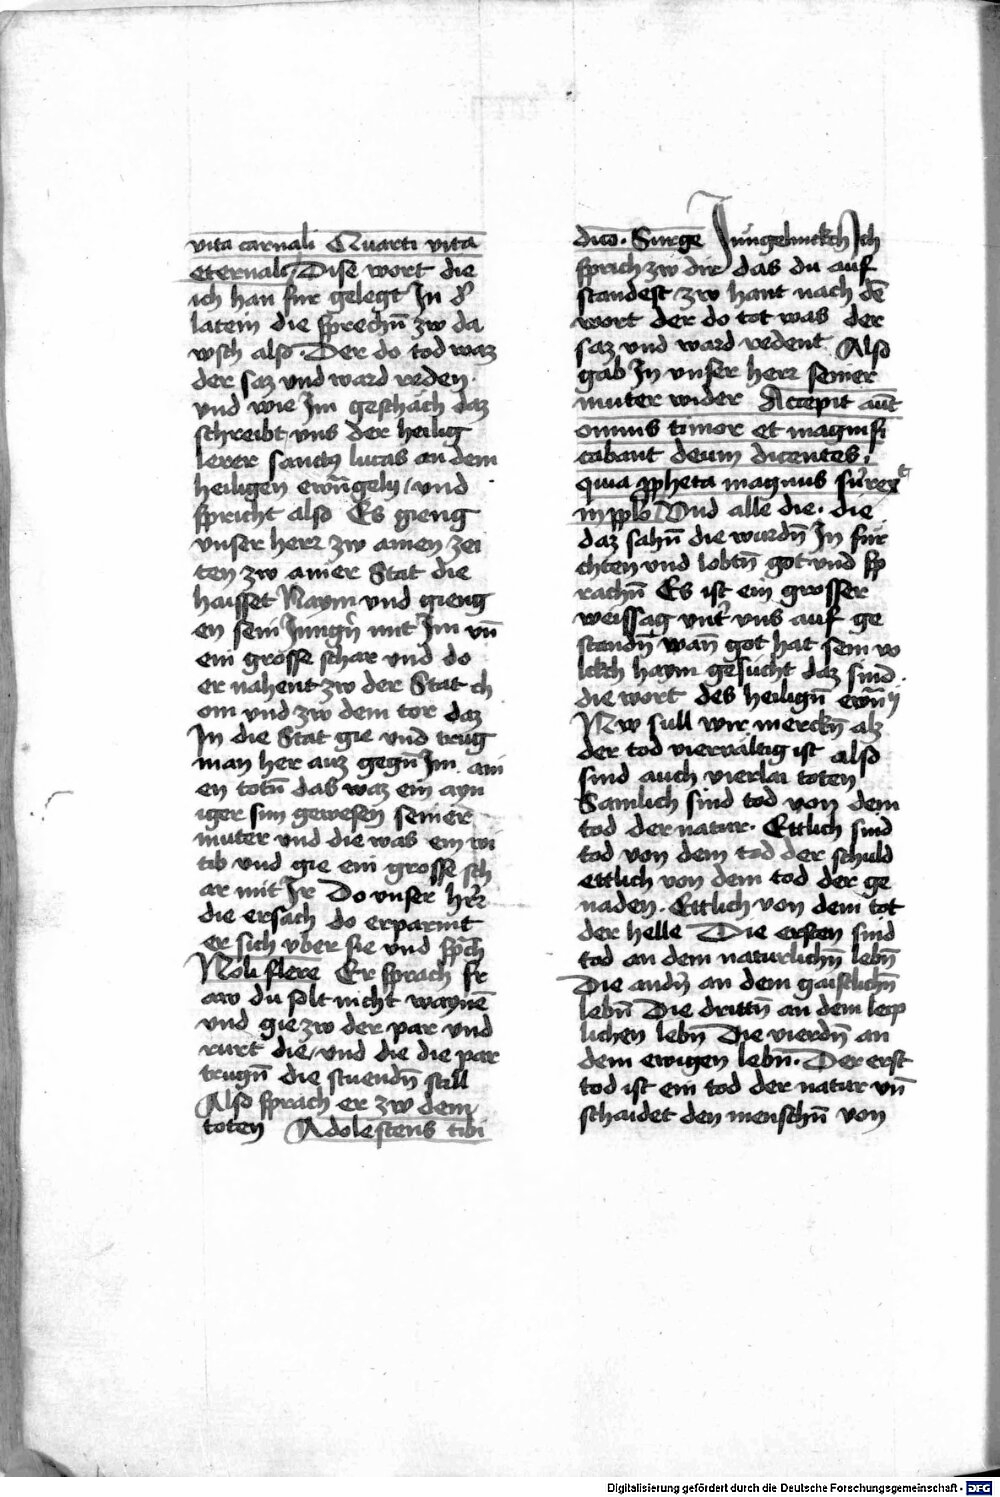 vita carnali Quarti vita
eternali Dise wort die
ich han fur gelegt In dˀ
latein die sprechn̄ zw da
wsch also · Der do tod waz
der saz vnd ward reden
vnd wie Im geschach daz
schreibt vns der heilig
lerer sanctꝯ lucas an dem
heiligen ewāngelij / vnd
spricht also Es gieng
vnser herr zw ainen zei
ten zw ainer Stat die
haisset Naym vnd gieng
en sein Jungn̄ mit Im vn̄
ein grosse schar vnd do
er nahent zw der Stat ch
om vnd zw dem tor daz
In die Stat gie vnd trug
man her auz gegn̄ Im ain
en totn̄ das waz ein ayn
iger sun gewesen seiner
muter vnd die was ein wi
tib vnd gie ein grosse sch
ar mit Ir Do vnser hr̄r
die ersach do erparmt
er sich vber sie vnd sp̄ch
Noli flere Er sprach fr
aw du solt nicht waynē
vnd gie zw der par vnd
rurt die / vnd die die par
trugn̄ die stuendn̄ still
Also sprach er zw dem
toten Adolescens tibi
dico · Surge Jungelinckch Ich
sprich zw dir das du auf
standest zw hant nach dē
wort der do tot was der
saz vnd ward redent Also
gab In vnser herr seiner
muter wider Accepit aūt
omnis timor et magnifi
cabant deum dicentes ·
quia ꝓpheta magnus surrexˀt
in pplo Vnd alle die · die
daz sahn̄ die wurdn̄ In fur
chten vnd lobtn̄ got vnd sp
rachn̄ Es ist ein grosser
weissag vntˀ vns auf ge
standn̄ wan̄ got hat sein vo
lckch haym gesucht daz sind
die wort des heilign̄ ewn̄ij
Nw sull wir merckn̄ alz
der tod viervaltig ist also
sind auch vierlai toten
Samlich sind tod von dem
tod der natur · Ettlich sind
tod von dem tod der schuld
ettlich von dem tod der ge
naden · Ettlich von dem tot
der helle Die ersten sind
tod an dem naturlichn̄ lebn̄
Die andn̄ an dem gaistlichn̄
lebn̄ Die drittn̄ an dem leip
lichen lebn̄ Die vierdn̄ an
dem ewigen lebn̄ · Der erst
tod ist ein tod der natur vn̄
schaidet den menschn̄ von
Digitalisierung gefördert durch die Deutsche Forschungsgemeinschaft - DFG